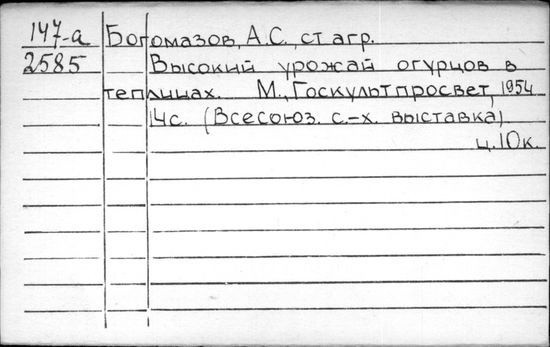 147-а Богомазов, А.С., ст агр.
2585 Высокий урожай огурцов в
теплицах. М., Госкультпросвет, 1954
14с. (Всесоюз. с.-х. выставка)
ц. 10к.